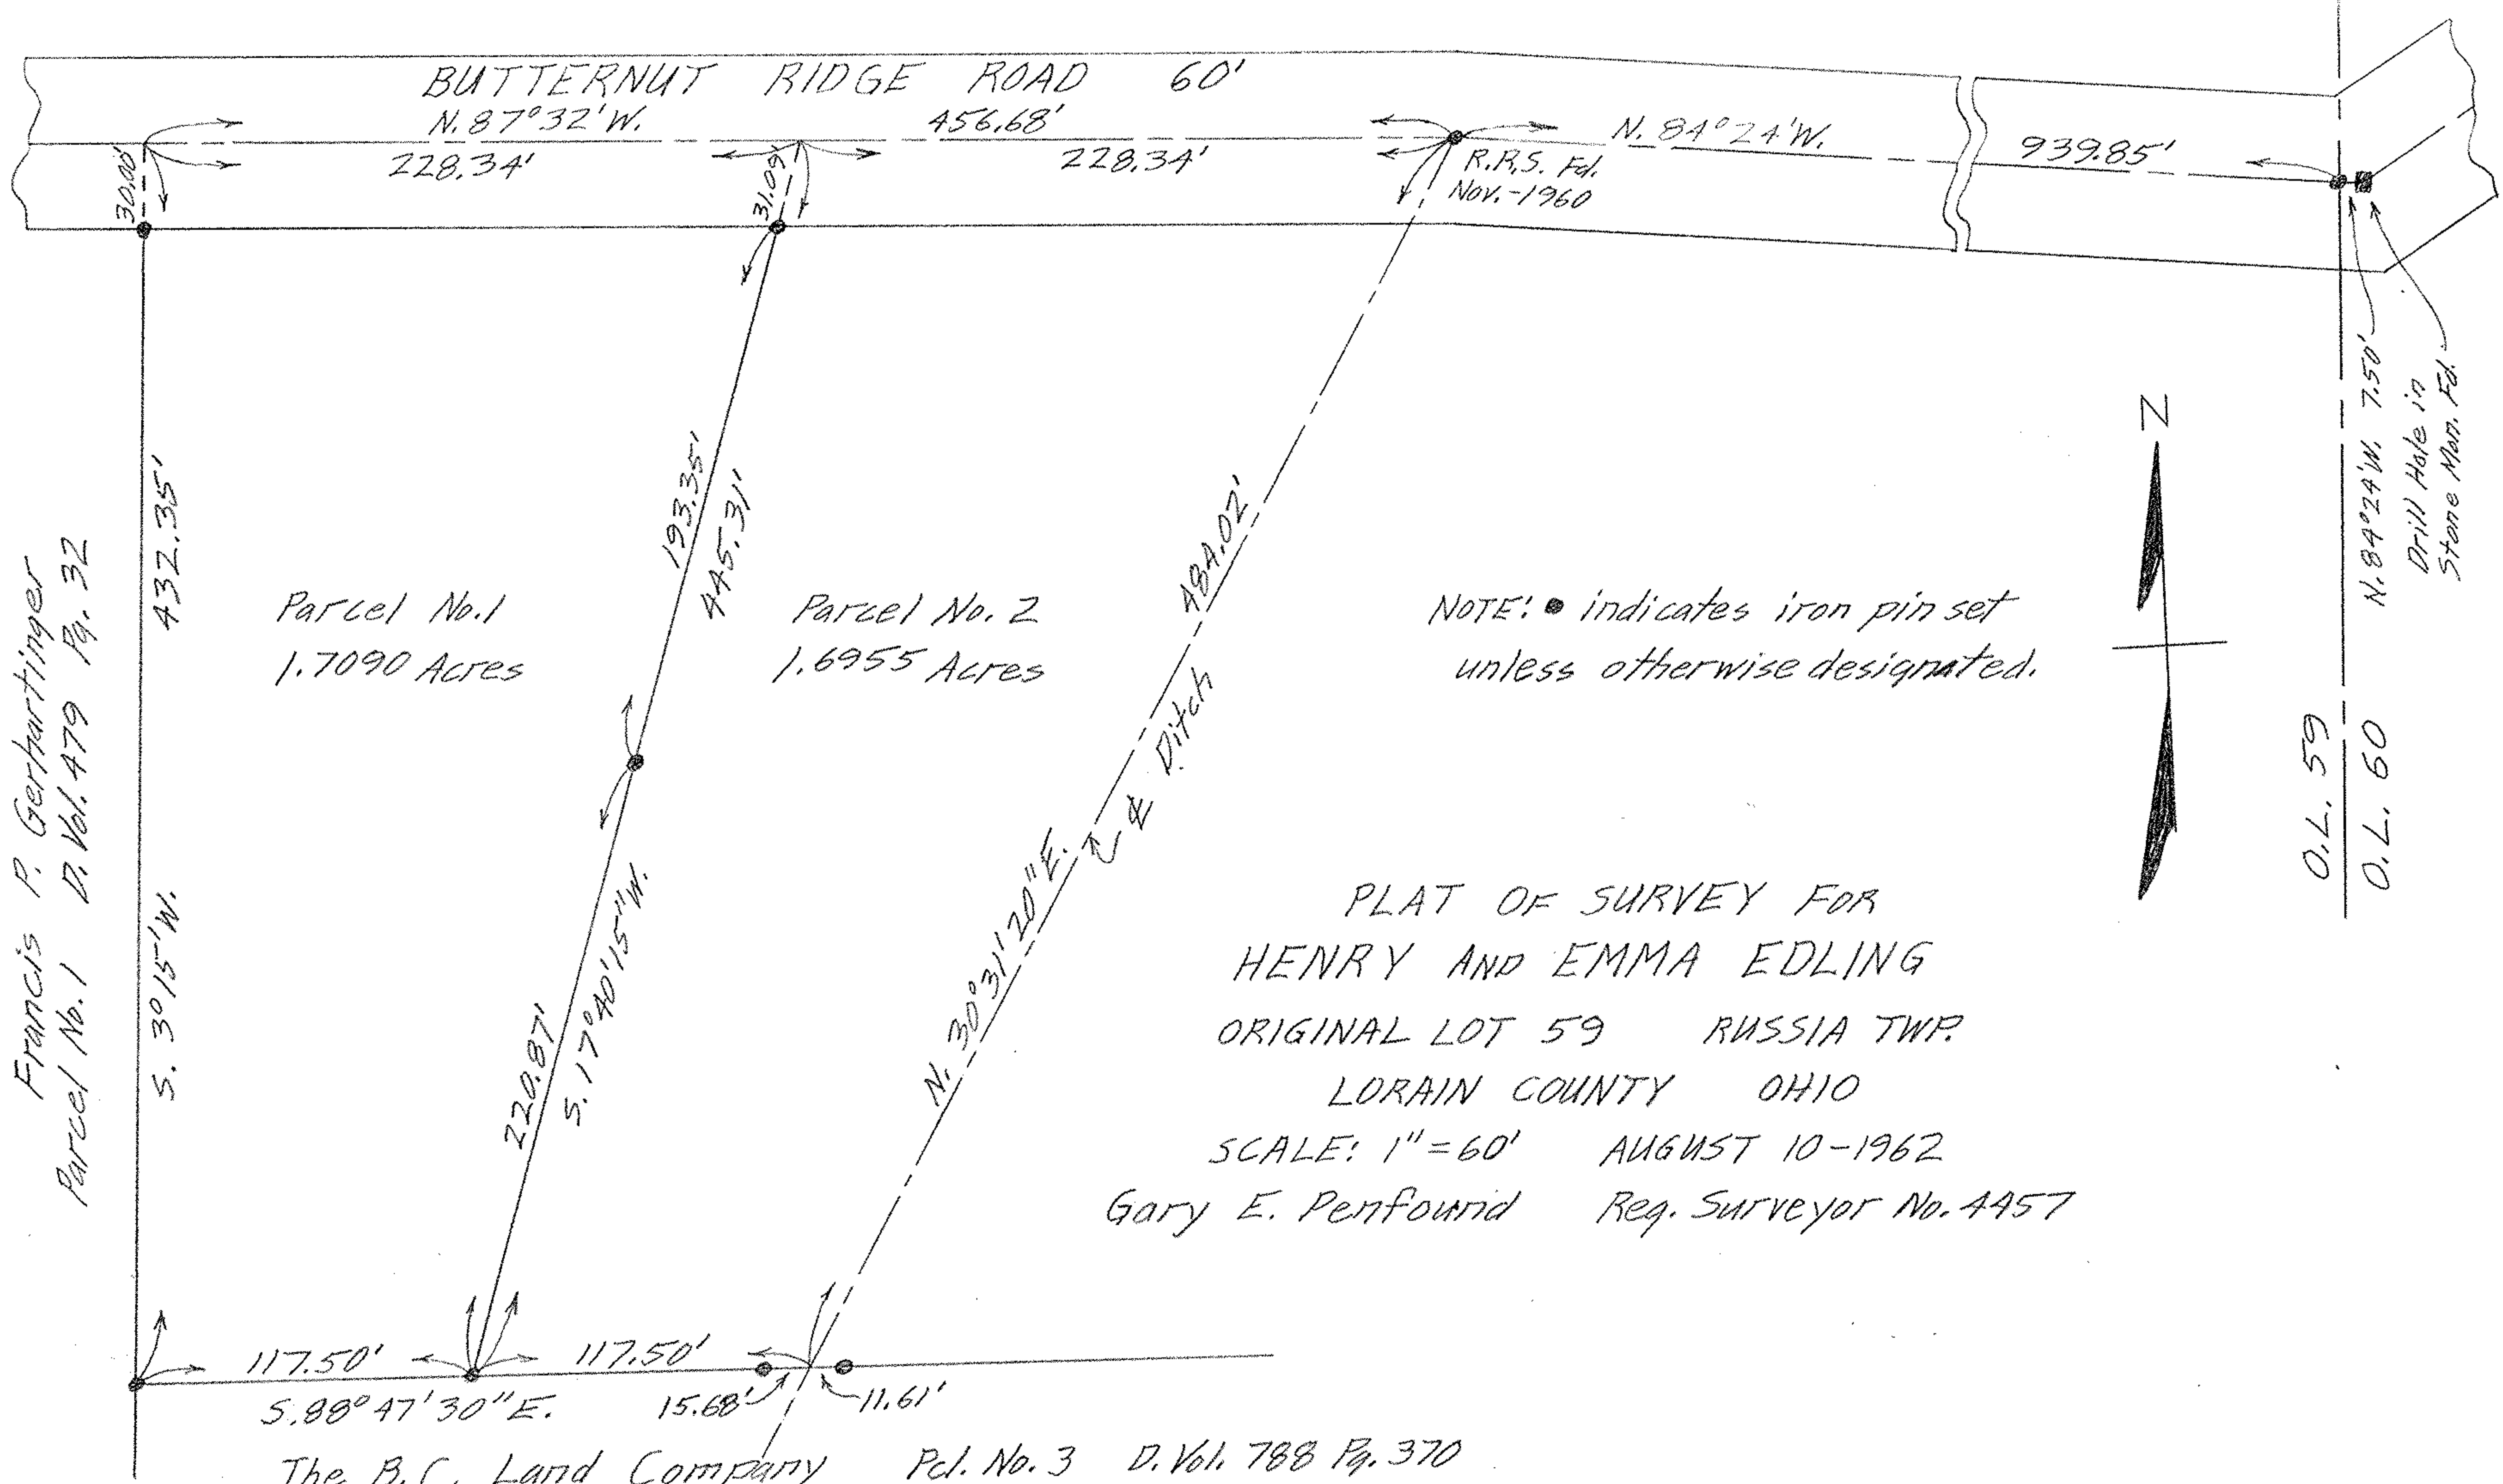 BUTTERNUT RIDGE ROAD 60'
N. 87°32'W. 456.68'
228.34' 228.34'
N. 84°24'W. 939.85'
R.R.S. Fd.
Nov.-1960
30.00'
31.09'
N. 84°24'W. 7.50'
Drill Hole in
Stone Mon. Fd.
Francis P. Gerhartinger
Parcel No. 1 D. Vol. 479 Pg. 32
432.35'
S. 3°15'W.
193.35'
445.31'
484.02'
Parcel No. 1
1.7090 Acres
Parcel No. 2
1.6955 Acres
NOTE: ● indicates iron pin set
unless otherwise designated.
N
℄ Ditch
O.L. 59
O.L. 60
220.87'
S. 17°40'15"W.
N. 30°31'20"E.
PLAT OF SURVEY FOR
HENRY AND EMMA EDLING
ORIGINAL LOT 59 RUSSIA TWP.
LORAIN COUNTY OHIO
SCALE: 1"=60' AUGUST 10-1962
Gary E. Penfound Reg. Surveyor No. 4457
117.50' 117.50'
S. 88°47'30"E. 15.68' 11.61'
The B.C. Land Company Pcl. No. 3 D. Vol. 788 Pg. 370